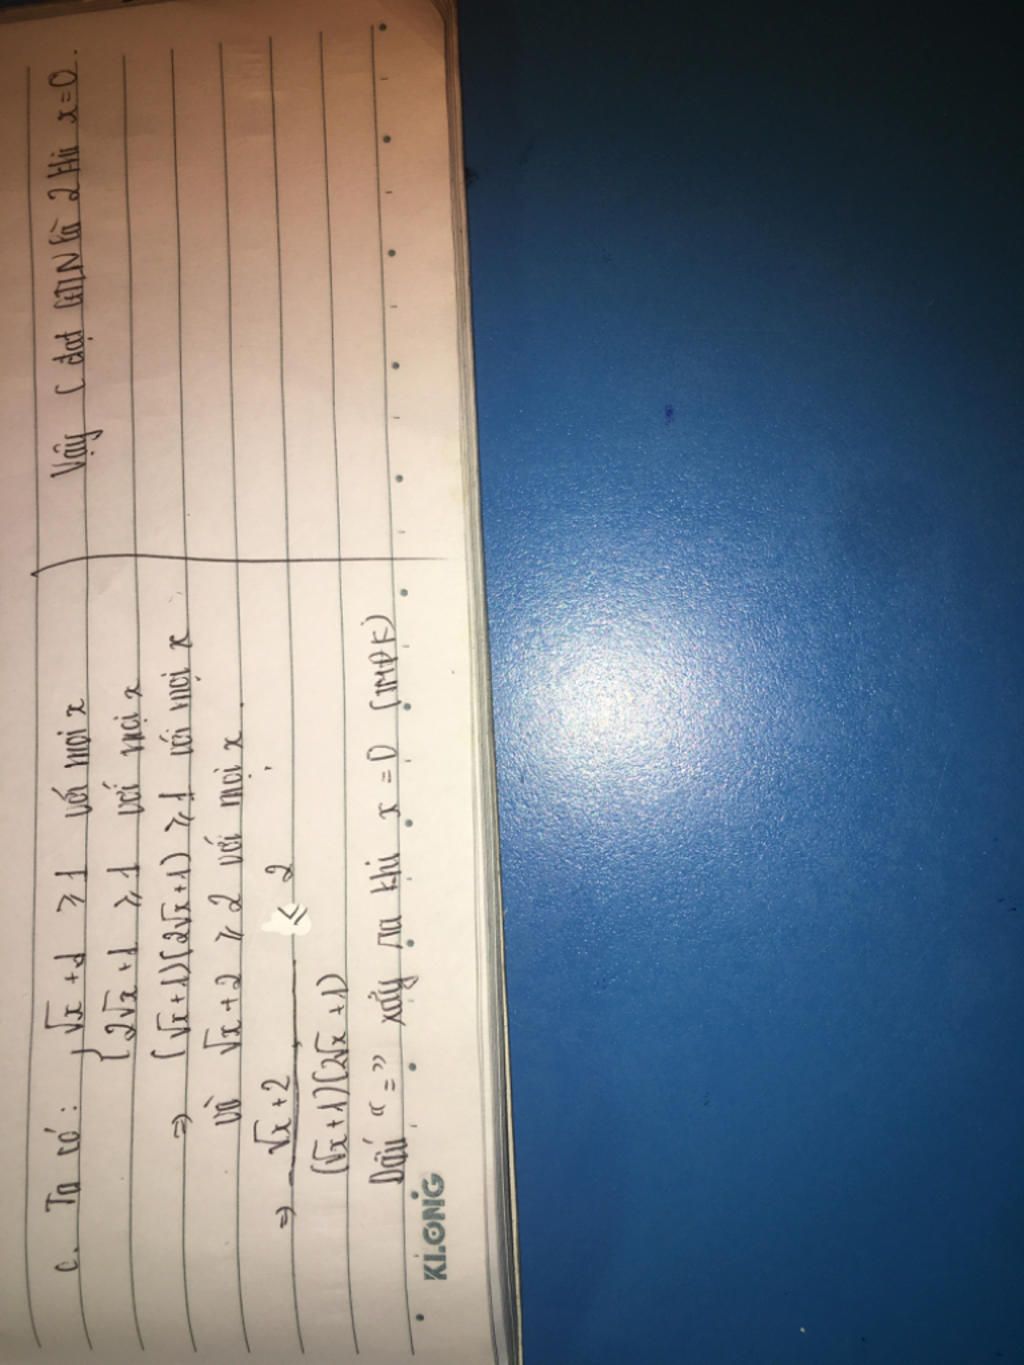 c. Ta có: √x + 1 ≥ 1 với mọi x
{ 2√x + 1 ≥ 1 với mọi x
⇒ (√x + 1)(2√x + 1) ≥ 1 với mọi x
và √x + 2 ≥ 2 với mọi x
⇒ √x + 2 / (√x + 1)(2√x + 1) ≤ 2
Dấu "=" xảy ra khi x = 0 (TMĐK)
Vậy C đạt GTLN là 2 khi x = 0.
KLONG